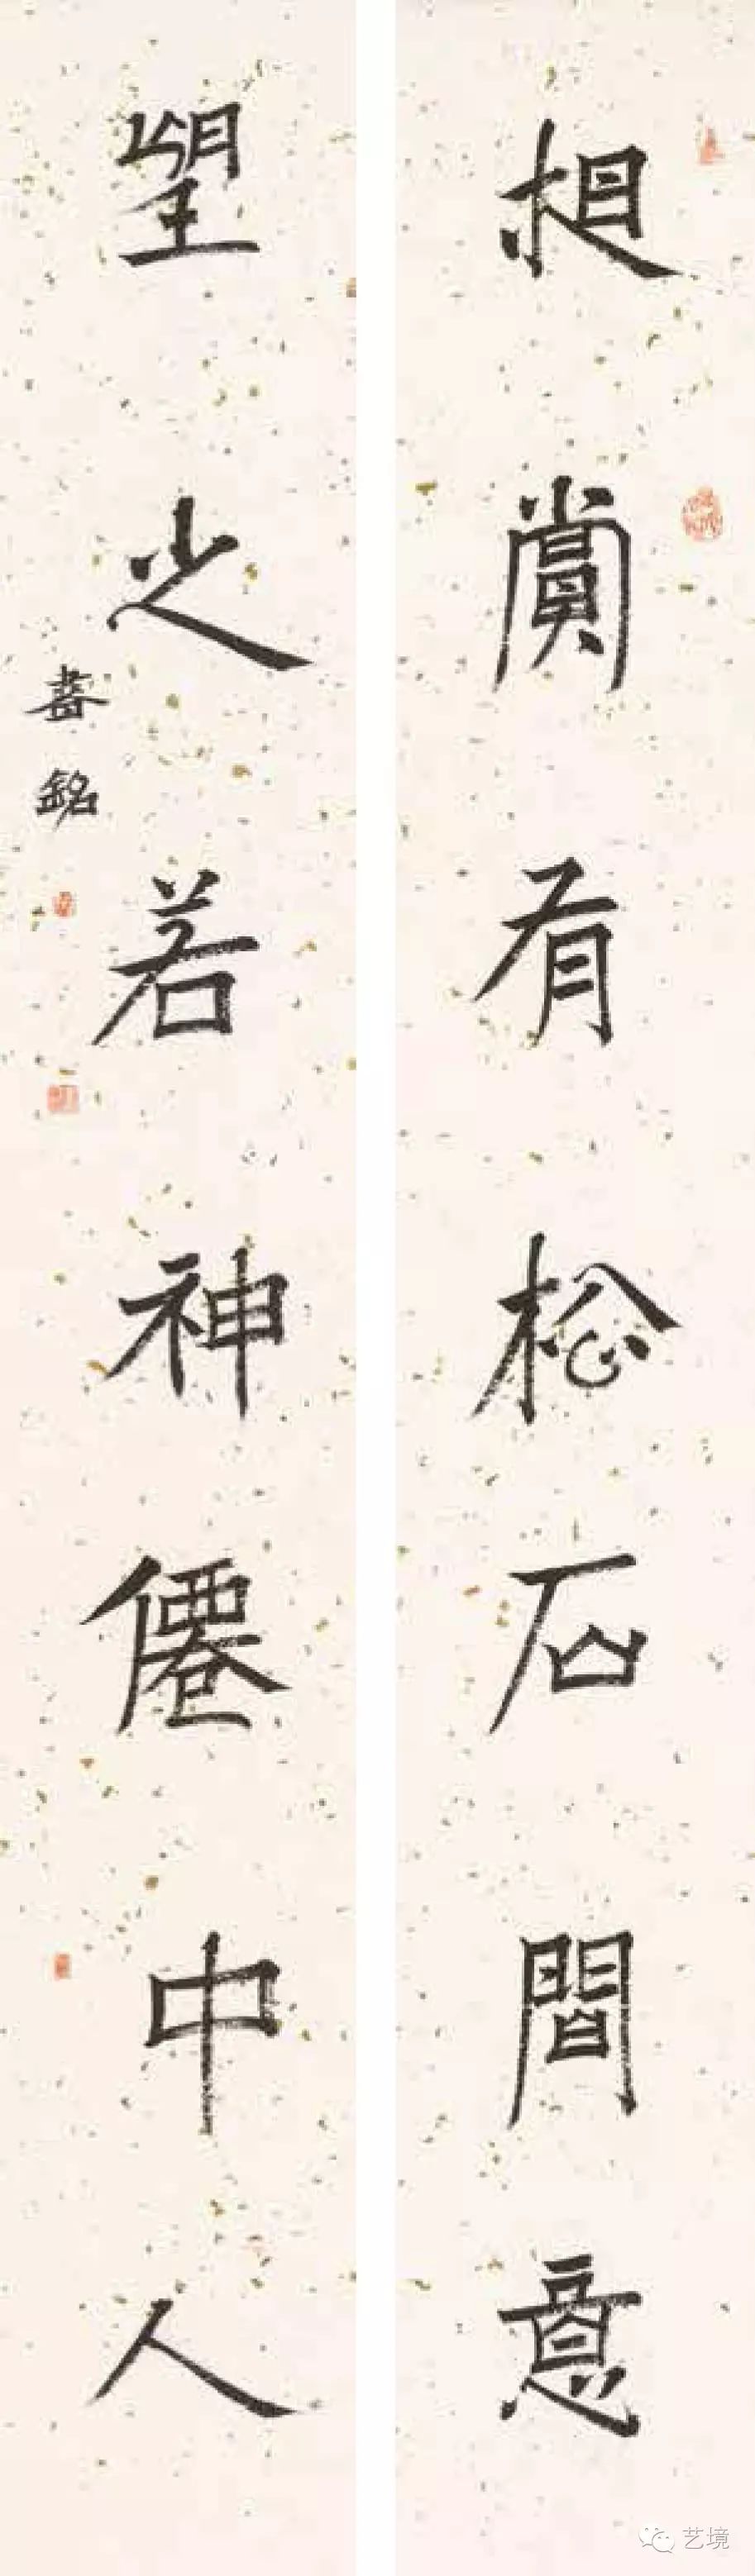 相賞有松石間意
望之若神僊中人
銘
艺境